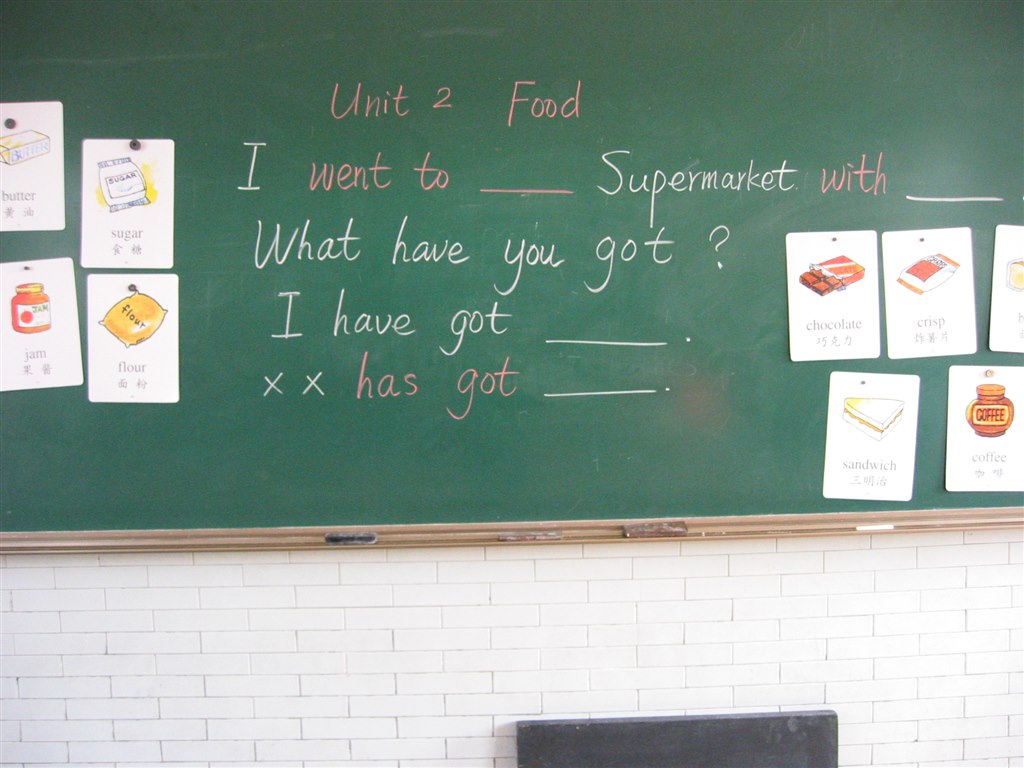 Unit 2 Food
I went to ____ Supermarket with ____.
What have you got ?
I have got ____.
x x has got ____.
BUTTER
butter
黄油
SUGAR
sugar
食糖
JAM
jam
果酱
flour
flour
面粉
chocolate
巧克力
crisp
炸薯片
sandwich
三明治
COFFEE
coffee
咖啡